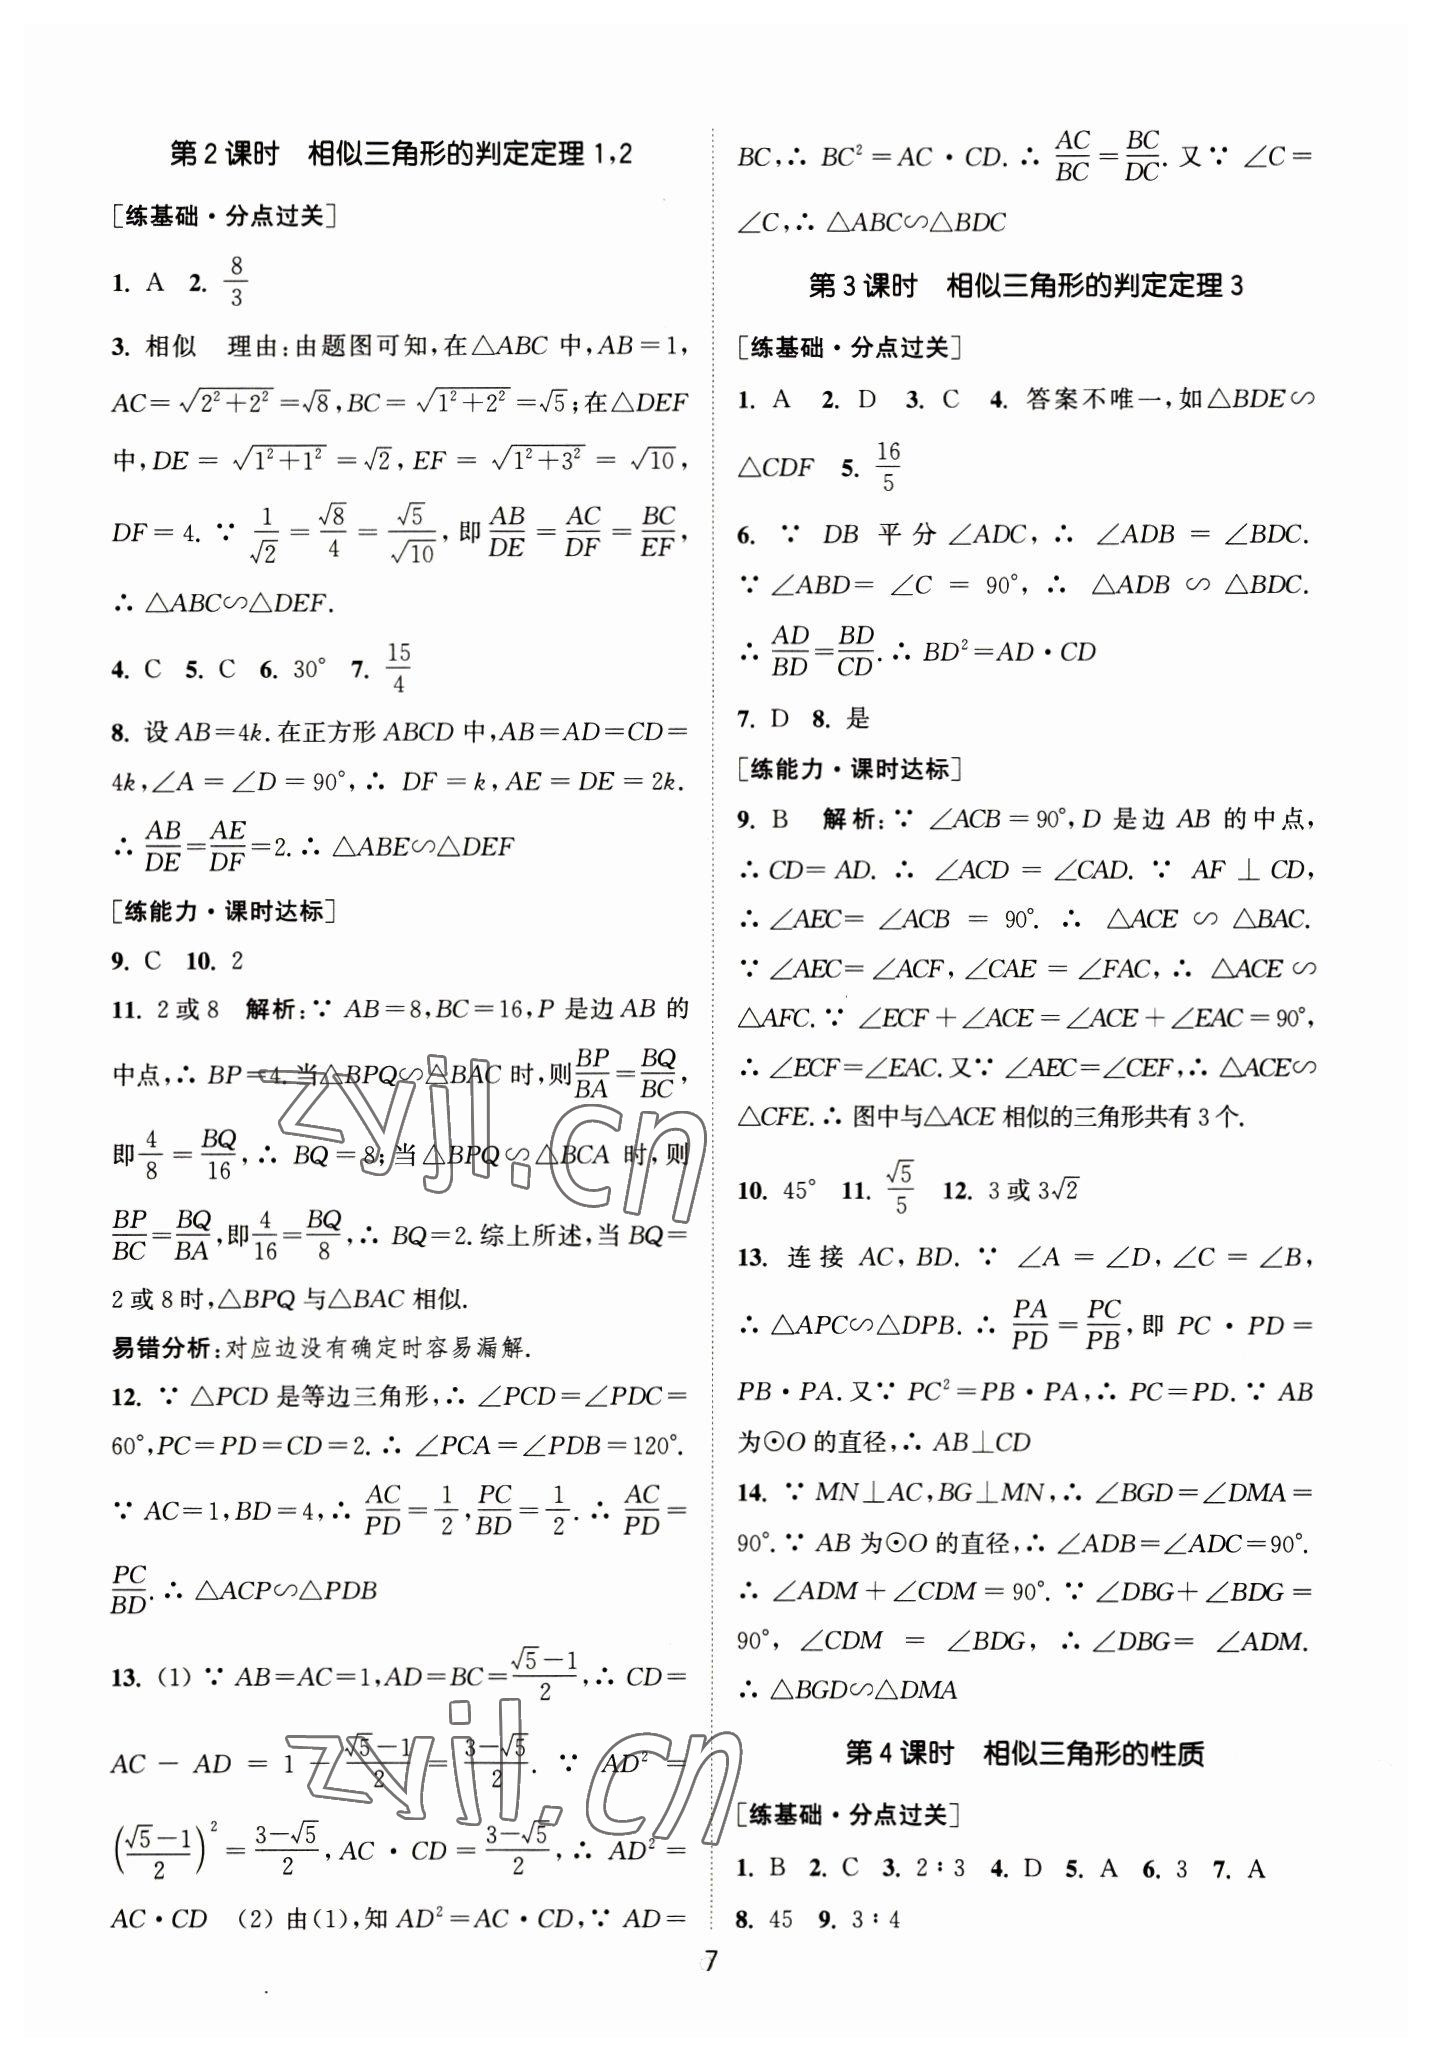 第2课时　相似三角形的判定定理1,2
[练基础·分点过关]
1. A　2. 8/3
3. 相似　理由:由题图可知,在△ABC中,AB=1,
AC=√(2²+2²)=√8,BC=√(1²+2²)=√5;在△DEF
中,DE=√(1²+1²)=√2,EF=√(1²+3²)=√10,
DF=4.∵ 1/√2=√8/4=√5/√10,即AB/DE=AC/DF=BC/EF,
∴ △ABC∽△DEF.
4. C　5. C　6. 30°　7. 15/4
8. 设AB=4k.在正方形ABCD中,AB=AD=CD=
4k,∠A=∠D=90°,∴ DF=k,AE=DE=2k.
∴ AB/DE=AE/DF=2.∴ △ABE∽△DEF
[练能力·课时达标]
9. C　10. 2
11. 2或8　解析:∵ AB=8,BC=16,P是边AB的
中点,∴ BP=4.当△BPQ∽△BAC时,则BP/BA=BQ/BC,
即4/8=BQ/16,∴ BQ=8;当△BPQ∽△BCA时,则
BP/BC=BQ/BA,即4/16=BQ/8,∴ BQ=2.综上所述,当BQ=
2或8时,△BPQ与△BAC相似.
易错分析:对应边没有确定时容易漏解.
12. ∵ △PCD是等边三角形,∴ ∠PCD=∠PDC=
60°,PC=PD=CD=2.∴ ∠PCA=∠PDB=120°.
∵ AC=1,BD=4,∴ AC/PD=1/2,PC/BD=1/2.∴ AC/PD=
PC/BD.∴ △ACP∽△PDB
13. (1) ∵ AB=AC=1,AD=BC=(√5-1)/2,∴ CD=
AC-AD=1-(√5-1)/2=(3-√5)/2.∵ AD²=
((√5-1)/2)²=(3-√5)/2,AC·CD=(3-√5)/2,∴ AD²=
AC·CD　(2) 由(1),知AD²=AC·CD,∵ AD=
BC,∴ BC²=AC·CD.∴ AC/BC=BC/DC.又∵ ∠C=
∠C,∴ △ABC∽△BDC
第3课时　相似三角形的判定定理3
[练基础·分点过关]
1. A　2. D　3. C　4. 答案不唯一,如△BDE∽
△CDF　5. 16/5
6. ∵ DB平分∠ADC,∴ ∠ADB=∠BDC.
∵ ∠ABD=∠C=90°,∴ △ADB∽△BDC.
∴ AD/BD=BD/CD.∴ BD²=AD·CD
7. D　8. 是
[练能力·课时达标]
9. B　解析:∵ ∠ACB=90°,D是边AB的中点,
∴ CD=AD.∴ ∠ACD=∠CAD.∵ AF⊥CD,
∴ ∠AEC=∠ACB=90°.∴ △ACE∽△BAC.
∵ ∠AEC=∠ACF,∠CAE=∠FAC,∴ △ACE∽
△AFC.∵ ∠ECF+∠ACE=∠ACE+∠EAC=90°,
∴ ∠ECF=∠EAC.又∵ ∠AEC=∠CEF,∴ △ACE∽
△CFE.∴ 图中与△ACE相似的三角形共有3个.
10. 45°　11. √5/5　12. 3或3√2
13. 连接AC,BD.∵ ∠A=∠D,∠C=∠B,
∴ △APC∽△DPB.∴ PA/PD=PC/PB,即PC·PD=
PB·PA.又∵ PC²=PB·PA,∴ PC=PD.∵ AB
为⊙O的直径,∴ AB⊥CD
14. ∵ MN⊥AC,BG⊥MN,∴ ∠BGD=∠DMA=
90°.∵ AB为⊙O的直径,∴ ∠ADB=∠ADC=90°.
∴ ∠ADM+∠CDM=90°.∵ ∠DBG+∠BDG=
90°,∠CDM=∠BDG,∴ ∠DBG=∠ADM.
∴ △BGD∽△DMA
第4课时　相似三角形的性质
[练基础·分点过关]
1. B　2. C　3. 2∶3　4. D　5. A　6. 3　7. A
8. 45　9. 3∶4
7
zyjl.cn
zyjl.cn